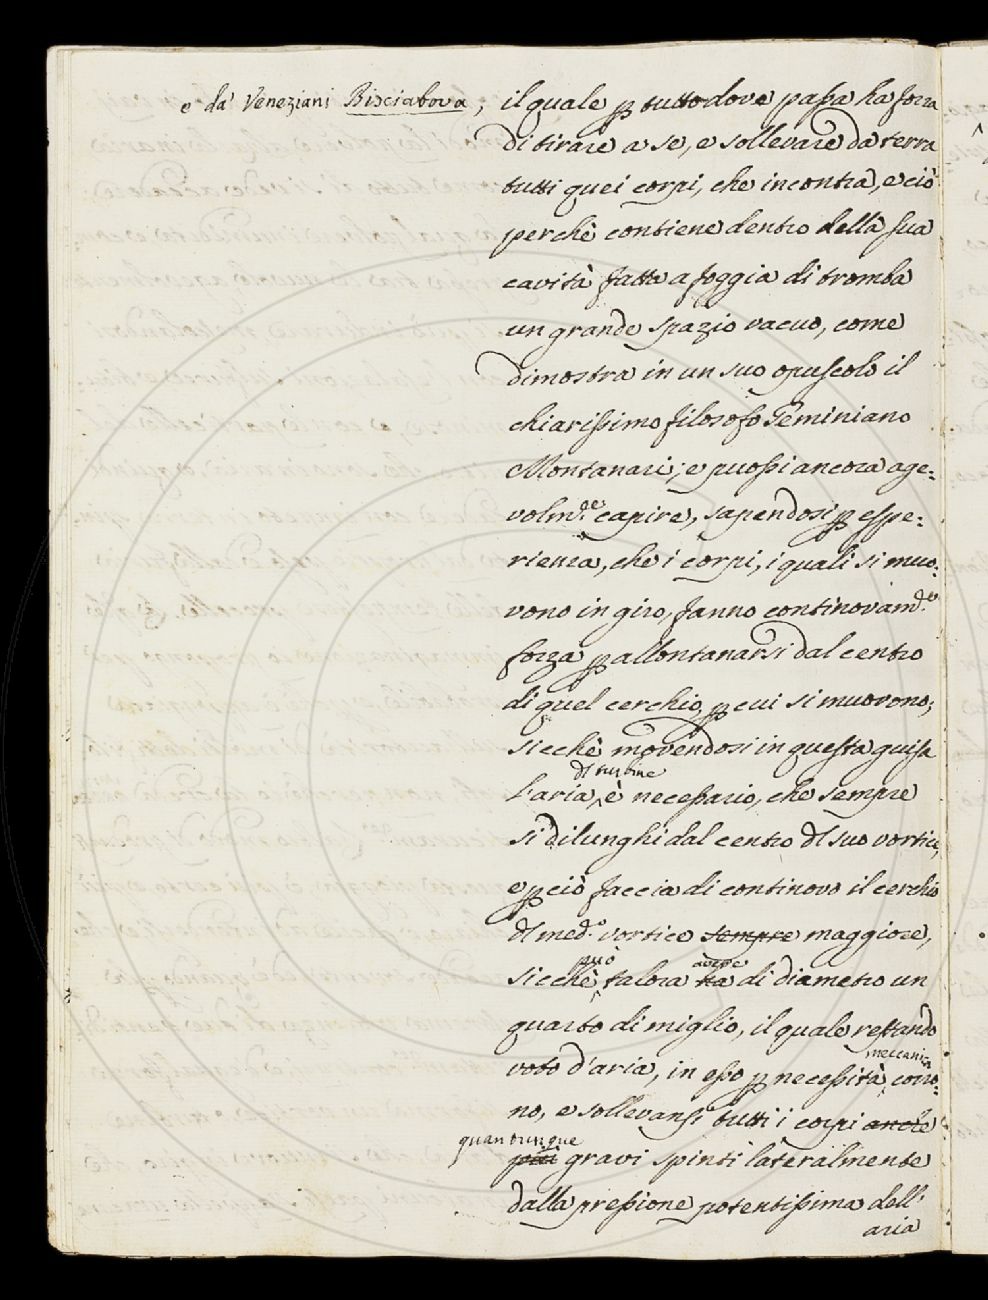 e da' Veneziani Bisciabova, il quale p tuttodove passa ha forza
di tirare a se, e sollevare da terra
tutti quei corpi, che incontra, e ciò
perchè contiene dentro della sua
cavità fatta a foggia di tromba
un grande spazio vacuo, come
dimostra in un suo opuscolo il
chiarissimo filosofo Geminiano
Montanari; e puossi ancora age=
volm.te capire, sapendosi p espe=
rienza, che i corpi, i quali si muo=
vono in giro, fanno continovam.te
forza p allontanarsi dal centro
di quel cerchio, p cui si muovono;
sicchè movendosi in questa guisa
dl turbine
l'aria, è necessario, che sempre
si dilunghi dal centro dl suo vortice,
e p ciò faccia di continovo il cerchio
dl med.o vortice sempre maggiore,
può avere
sicchè talora ha di diametro un
quarto di miglio, il quale restando
meccanica
voto d'aria, in esso p necessità corro=
no, e sollevansi tutti i corpi anche
quantunque
più gravi spinti lateralmente
dalla pressione potentissima dell'
aria